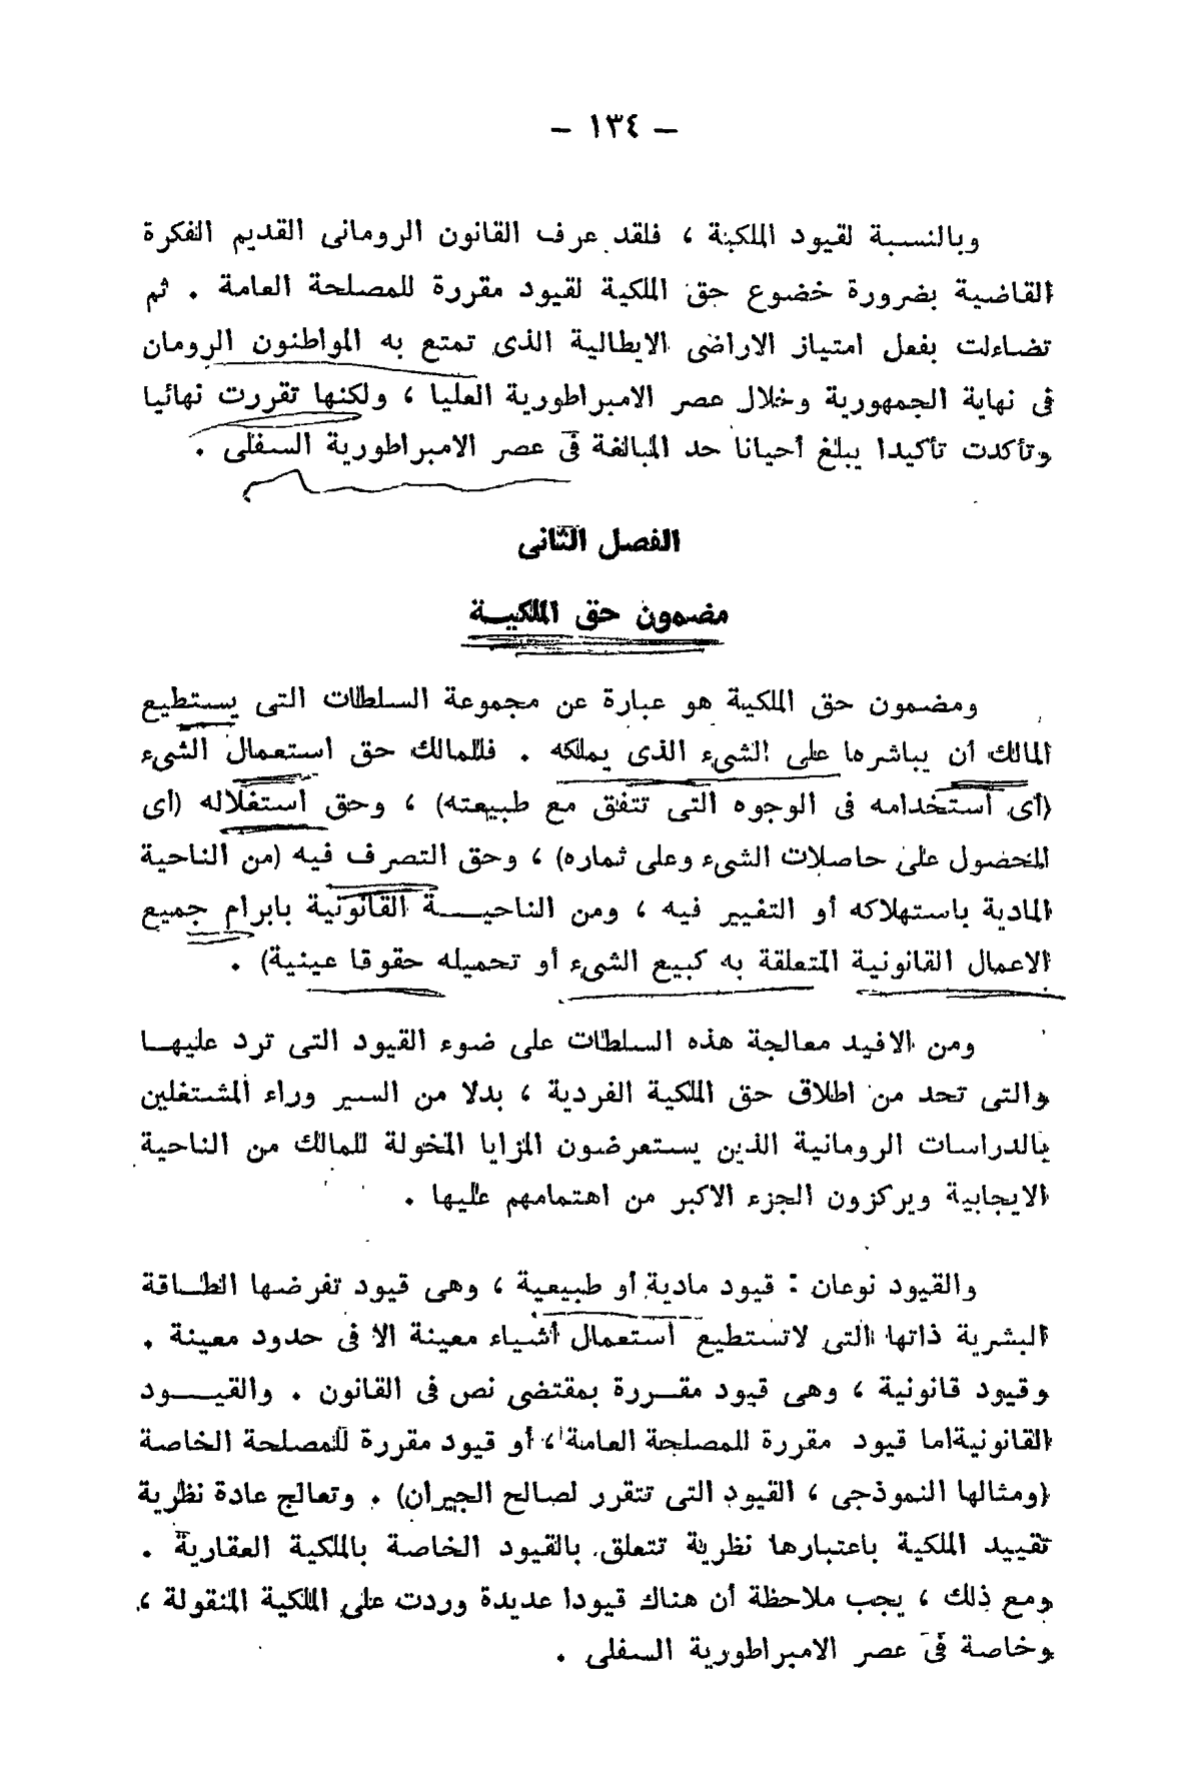 — ١٣٤ —
وبالنسبة لقيود الملكية ، فلقد عرف القانون الرومانى القديم الفكرة
القاضية بضرورة خضوع حق الملكية لقيود مقررة للمصلحة العامة . ثم
تضاءلت بفعل امتياز الاراضى الايطالية الذى تمتع به المواطنون الرومان
فى نهاية الجمهورية وخلال عصر الامبراطورية العليا ، ولكنها تقررت نهائيا
وتأكدت تأكيدا يبلغ أحيانا حد المبالغة فى عصر الامبراطورية السفلى .
الفصل الثانى
مضمون حق الملكيـــة
ومضمون حق الملكية هو عبارة عن مجموعة السلطات التى يستطيع
المالك أن يباشرها على الشىء الذى يملكه . فللمالك حق استعمال الشىء
(أى استخدامه فى الوجوه التى تتفق مع طبيعته) ، وحق استغلاله (أى
الحصول على حاصلات الشىء وعلى ثماره) ، وحق التصرف فيه (من الناحية
المادية باستهلاكه أو التغيير فيه ، ومن الناحيـــة القانونية بابرام جميع
الاعمال القانونية المتعلقة به كبيع الشىء أو تحميله حقوقا عينية) .
ومن الافيد معالجة هذه السلطات على ضوء القيود التى ترد عليهــا
والتى تحد من اطلاق حق الملكية الفردية ، بدلا من السير وراء المشتغلين
بالدراسات الرومانية الذين يستعرضون المزايا المخولة للمالك من الناحية
الايجابية ويركزون الجزء الاكبر من اهتمامهم عليها .
والقيود نوعان : قيود مادية أو طبيعية ، وهى قيود تفرضها الطــاقة
البشرية ذاتها التى لاتستطيع استعمال أشياء معينة الا فى حدود معينة .
وقيود قانونية ، وهى قيود مقـــررة بمقتضى نص فى القانون . والقيـــود
القانونيةاما قيود مقررة للمصلحة العامة ، أو قيود مقررة للمصلحة الخاصة
(ومثالها النموذجى ، القيود التى تتقرر لصالح الجيران) . وتعالج عادة نظرية
تقييد الملكية باعتبارها نظرية تتعلق بالقيود الخاصة بالملكية العقارية .
ومع ذلك ، يجب ملاحظة أن هناك قيودا عديدة وردت على الملكية المنقولة ،
وخاصة فى عصر الامبراطورية السفلى .